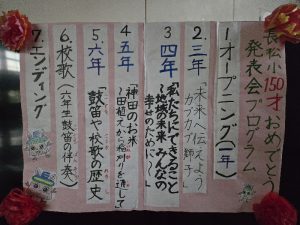 長松小150才おめでとう
発表会プログラム
1オープニング(一年)
2三年「未来へ伝えよう
カブカブ獅子」
3四年「私たちにできること
〜地域の未来 みんなの
幸せのために〜」
4五年「神田のお米
〜田植えから稲刈りを通して〜」
5六年「鼓笛・校歌の歴史」
6校歌(六年生鼓笛の伴奏)
7エンディング